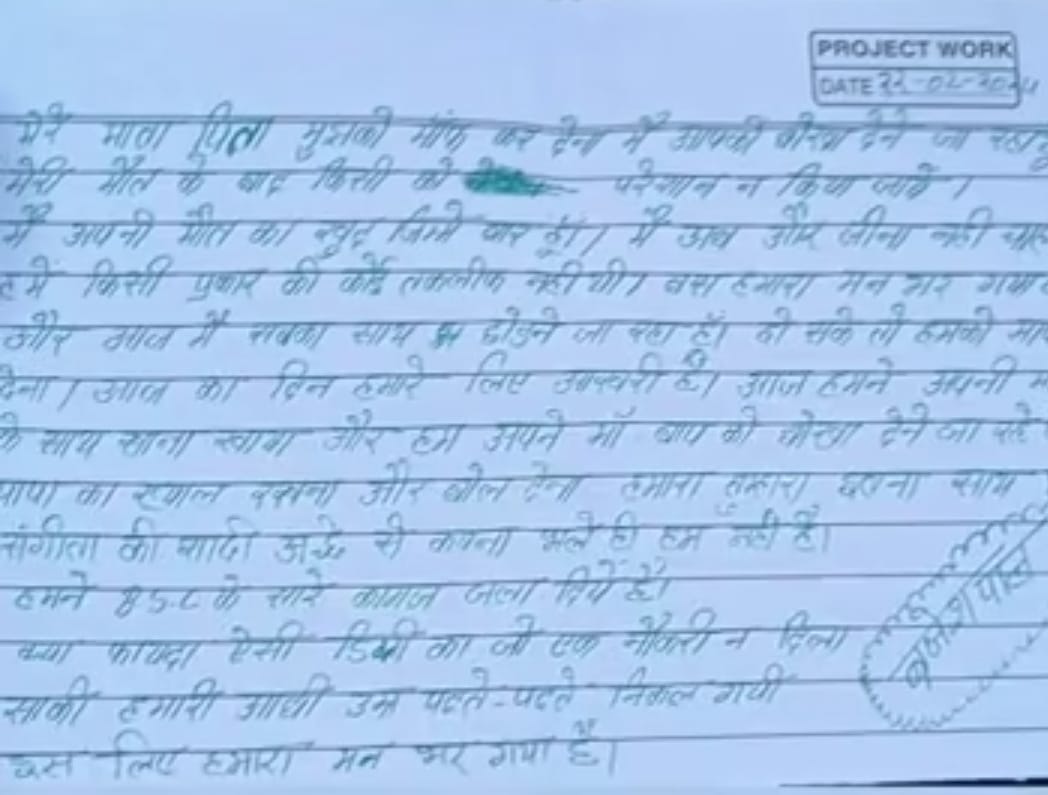 PROJECT WORK
DATE 22-02-2024
मेरे माता पिता मुझको माँफ कर देना मैं आपको धोखा देने जा रहा हूँ
मेरी मौत के बाद किसी को परेशान न किया जायें।
मैं अपनी मौत का खुद जिम्मेदार हूँ। मैं अब और जीना नहीं
हमें किसी प्रकार की कोई तकलीफ नहीं थी। बस हमारा मन भर गया
और आज मैं सबका साथ छोडने जा रहा हूँ। हो सके तो हमको
देना। आज का दिन हमारे लिए आखरी है। आज हमने अपनी
के साथ खाना खाया और हम अपने माँ बाप को धोखा देने जा रहे
पापा का ख्याल रखना और बोल देना हमारा तुम्हारा इतना साथ
संगीता की शादी अच्छे से करना भले ही हम नहीं है।
हमने B.S.C के सारे कागज जला दियें है।
क्या फायदा ऐसी डिग्री का जो एक नौकरी न दिला
सकी हमारी आधी उम्र पढते-पढते निकल गयी
इस लिए हमारा मन भर गया है।
बृजेश पाल